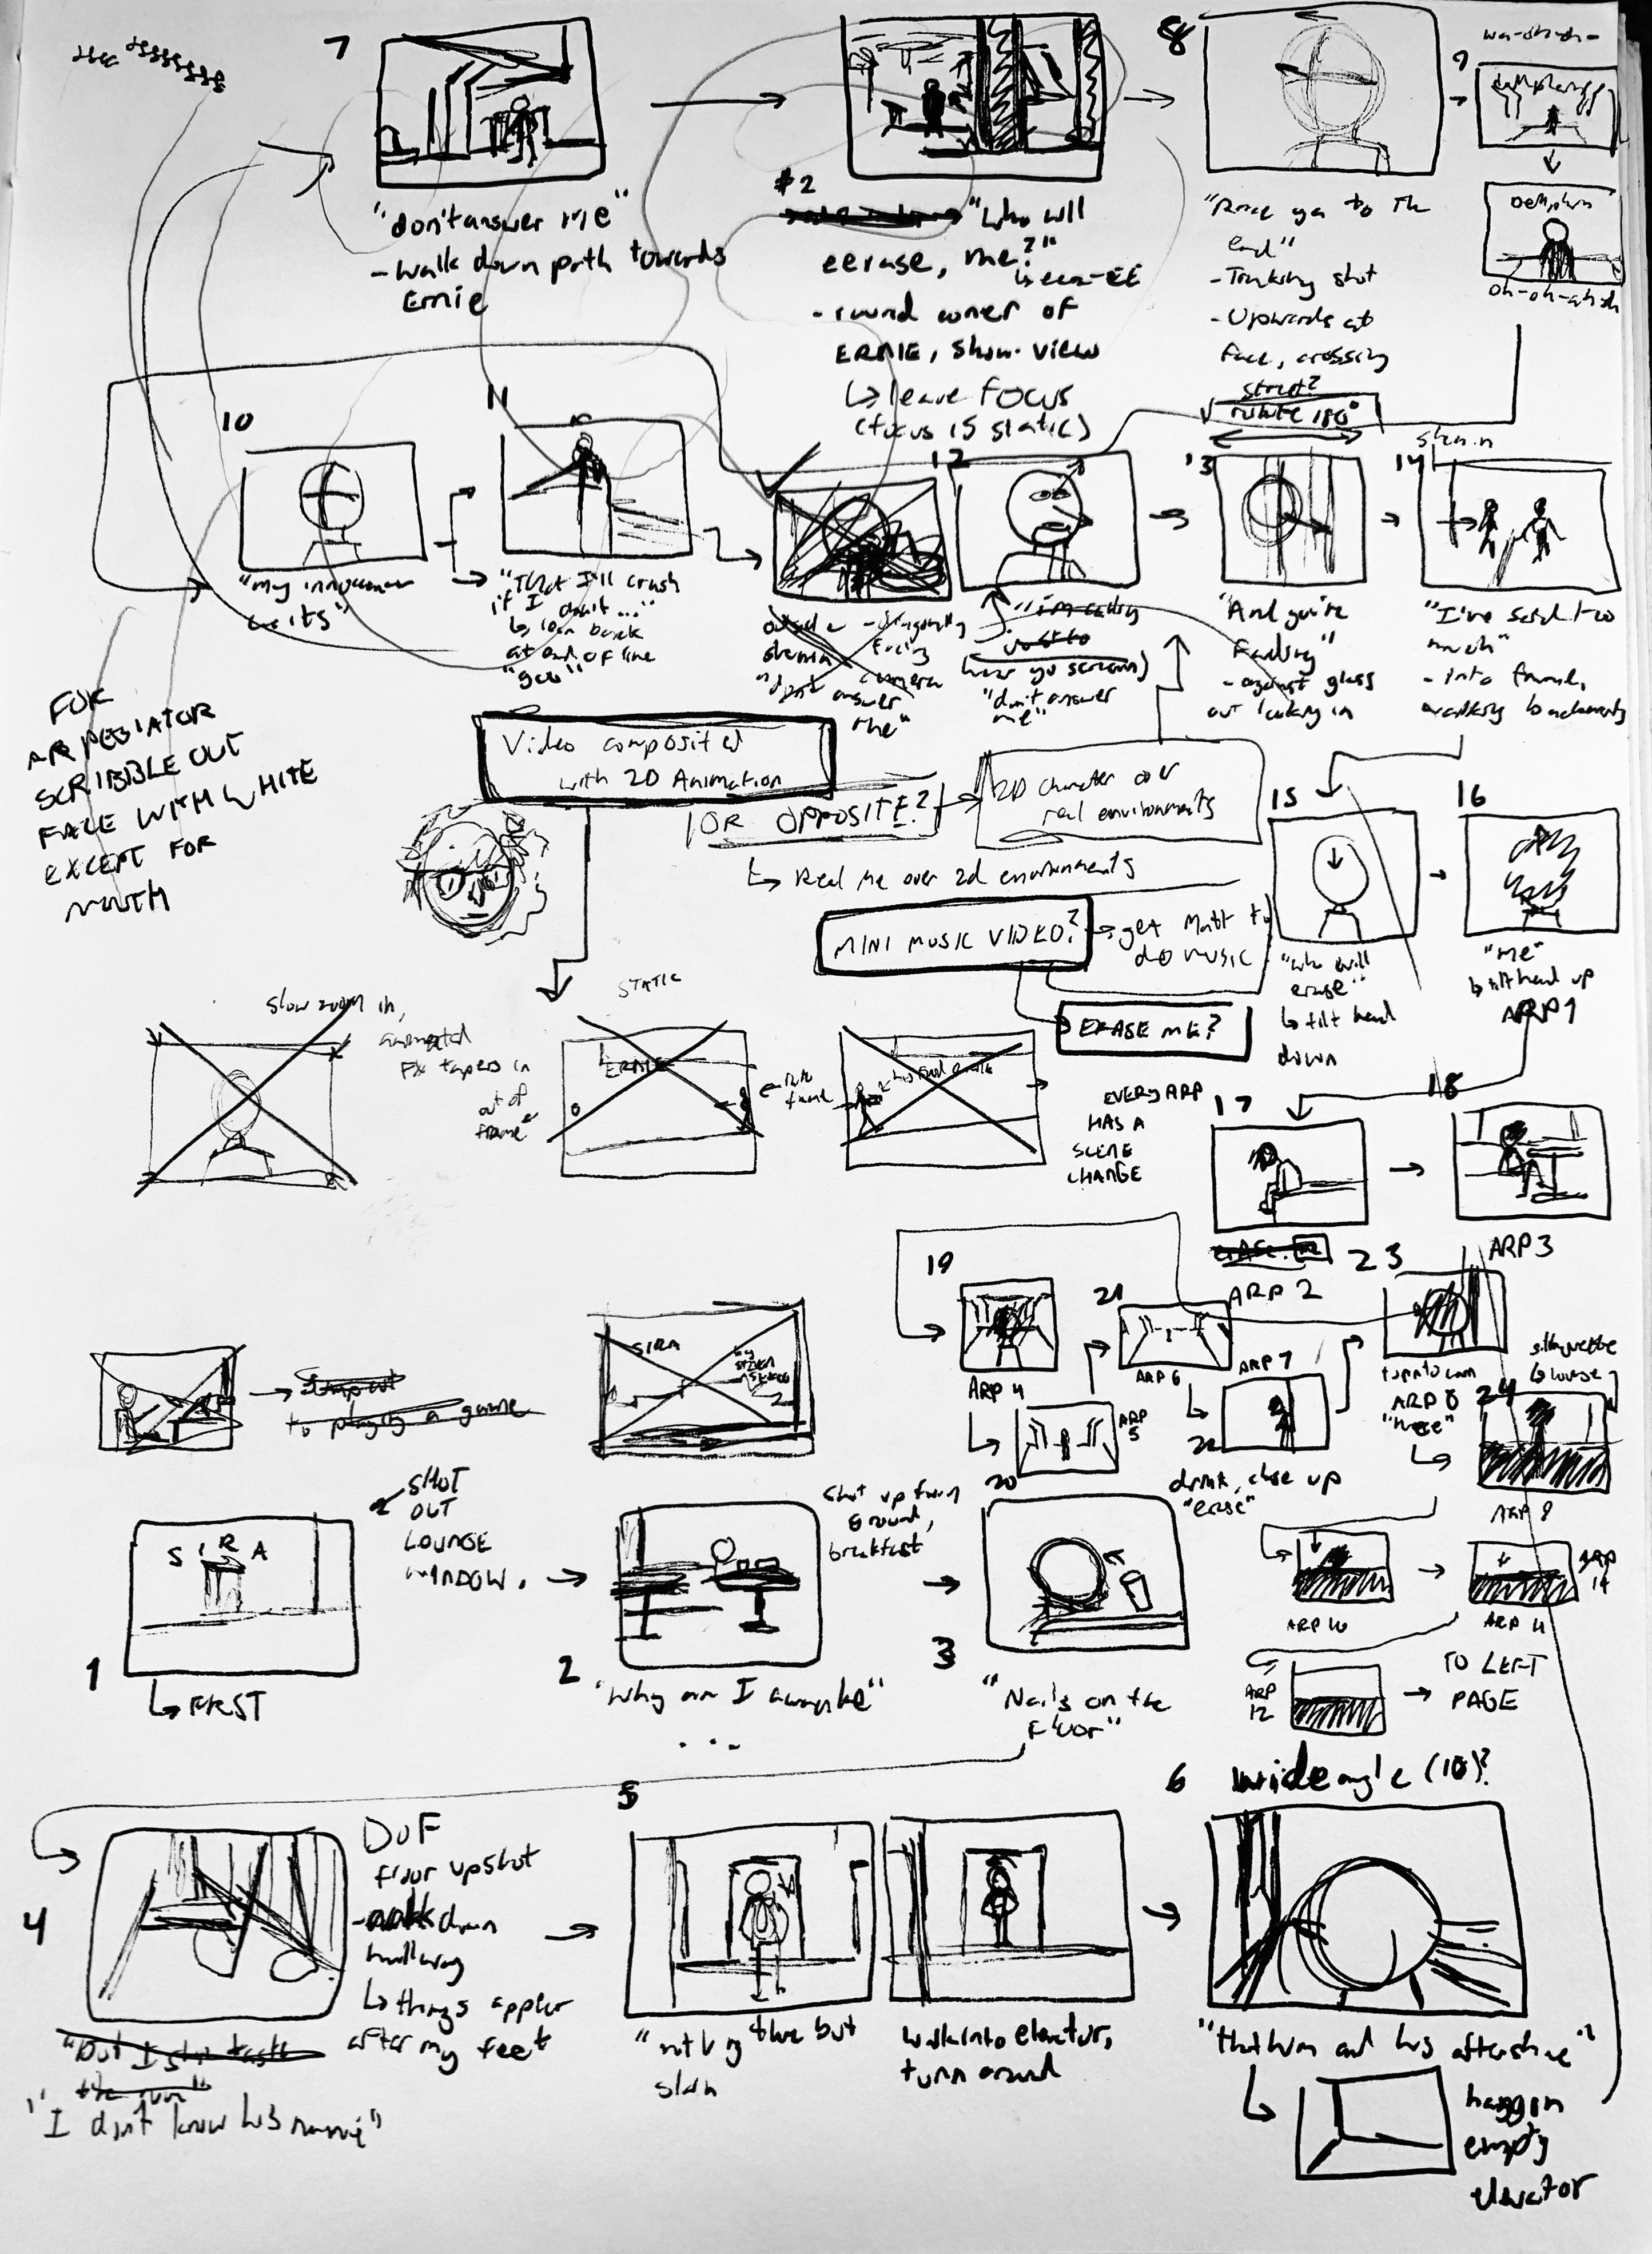 7
"don't answer me"
- walk down path towards
Ernie
#2
"who will
eerase, me?"
- round corner of
ERNIE, show view
↳ leave FOCUS
(focus is static)
8
to the
end"
- Tracking shot
- Upwards at
face, crossing
street?
rotate 180°
9
oh-oh-ah-oh
10
"my innocence
waits"
11
"That I'll crush
if I don't..."
↳ lean back
at end of line
12
"don't answer
me"
"I'm calling
just to
hear you scream)
"don't answer
me"
13
"And you're
Fading"
- against glass
out looking in
14
"I've said too
much"
- into frame,
walking backwards
FOR
ARPEGIATOR
SCRIBBLE OUT
FACE WITH WHITE
EXCEPT FOR
MOUTH
Video composited
with 2D Animation
OR OPPOSITE?
2D Character over
real environments
↳ Real me over 2d environments
MINI MUSIC VIDEO?
→ get Matt to
do music
ERASE ME?
15
"who will
erase"
↳ tilt head
down
16
"me"
↳ tilt head up
ARP 1
slow zoom in,
animated
FX tapers in
out of
frame
STATIC
ERNIE
EVERY ARP
HAS A
SCENE
CHANGE
17
ARP 2
18
ARP 3
19
ARP 4
20
ARP
5
21
ARP 6
ARP 7
22
drink, close up
"erase"
23
turn to cam
ARP 8
24
silhouette
ARP 9
ARP 10
ARP 11
ARP
12
TO LEFT
PAGE
to playing a game
SIRA
SHOT
OUT
LOUNGE
WINDOW.
SIRA
1
↳ FIRST
2
"Why am I awake"
...
shot up from
ground,
breakfast
3
"Nails on the
Floor"
4
DOF
floor upshot
- walk down
hallway
↳ things appear
after my feet
"But I still taste
"I don't know his name"
5
walk into elevator,
turn around
6
wide angle (10)?
"
him and his aftershave"
↳ hang on
empty
elevator